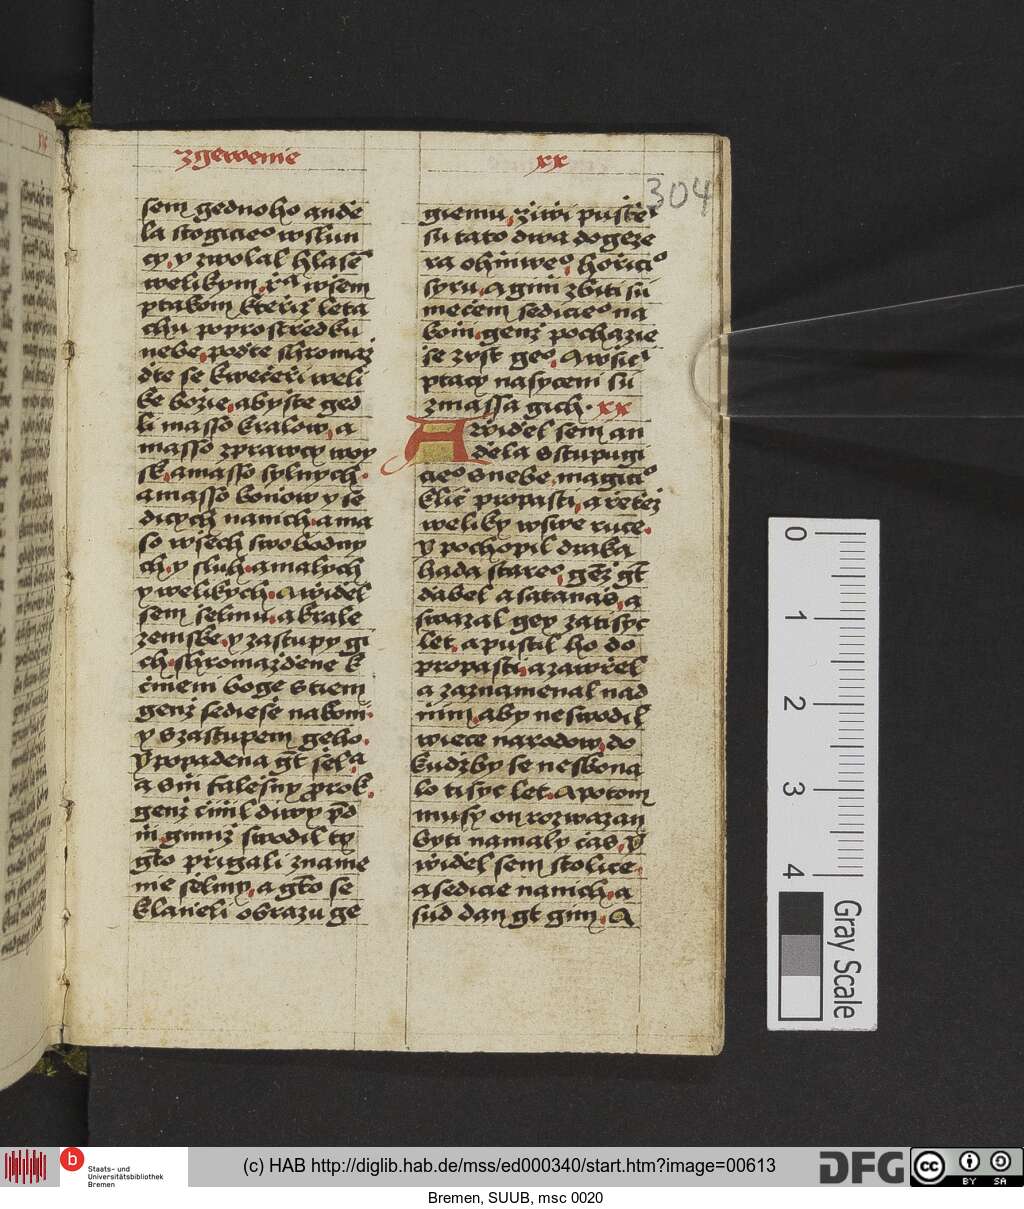 zgewenie
xx
304
sem gednoho ande
la stogicieº w slun
cy, y zwolal hlasē
welikym, rª wsem
ptakom kteriz leta
chu poprostredku
nebe, podte shromaz
dte se kweceri weli
ke bozie, abyste ged
li masso kralow, a
masso zprawcy woy
sk, a masso sylnych.
a masso koniow y se
dicych nanich, a ma
so wsech swobodny
ch, y sluh, a malych
y welikych. A widel
sem selmu, a krale
zemske, y zastupy gi
ch, shromazdene k
cineni boge s tiem
genz sediese nakoni.
y s zastupem geho.
Y popadena gt selª
a s ni falesny prok.
genz cinil diwy pd
ni, gimiz swodil ty
gto prigali zname
nie selmy, a gto se
klaneli obrazu ge
giemu, ziwi pustei
su tato dwa dogeze
ra ohniweº, horiciº
syru. A gini zbiti su
mecem sedicieº na
koni, genz pochazie
se z vst geº. A wsici
ptacy nasyceni su
z massa gich. xx
A widel sem an
dela sstupugi
cieº s nebe, magiciº
klic propasti, a retez
weliky w swe ruce.
Y pochopil draka
hada stareº, genz gt
dabel a satanas, a
swazal gey za tisyc
let, a pustil ho do
propasti, a zawrel
a zaznamenal nad
nim, aby neswodil
wiece narodow, do
kudzby se neskona
lo tisyc let. A potom
musy on rozwazan
byti namaly cas, Y
widel sem stolice.
a sedicie nanich, a
sud dan gt gim. A
0 1 2 3 4
Gray Scale
b
Staats- und
Universitätsbibliothek
Bremen
(c) HAB http://diglib.hab.de/mss/ed000340/start.htm?image=00613
DFG
cc BY SA
Bremen, SUUB, msc 0020